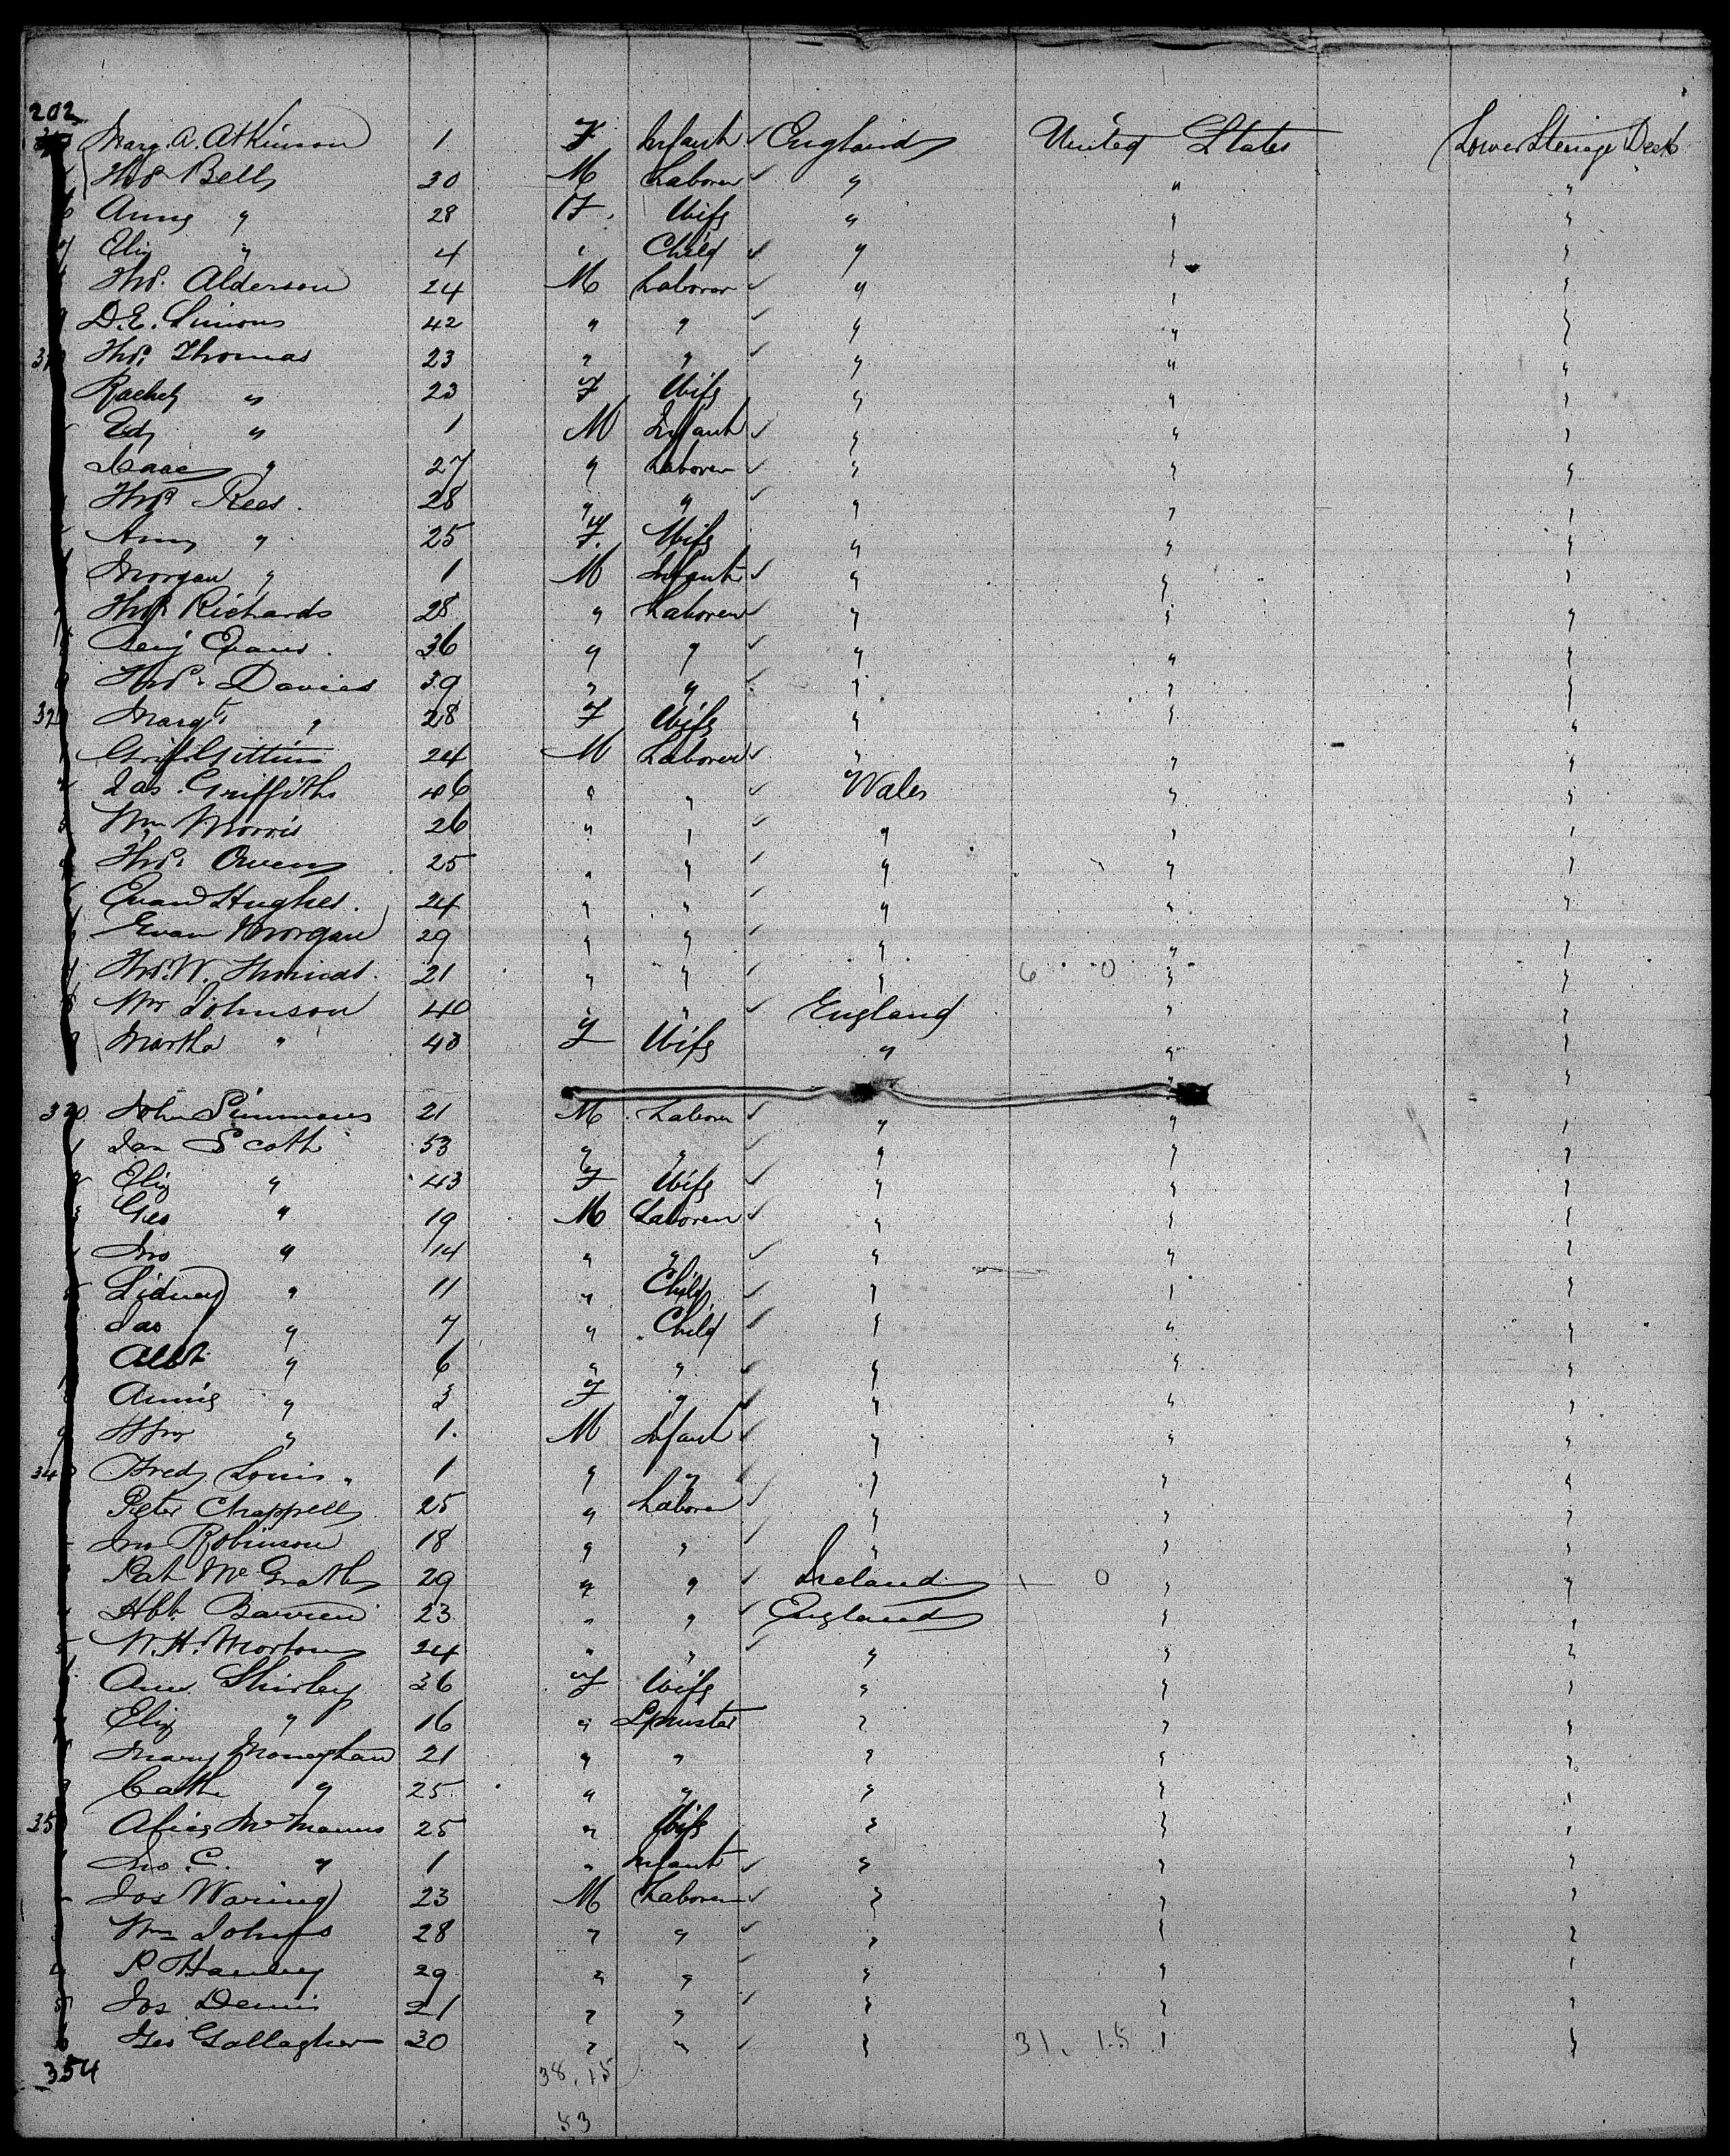 202
Marg. A. Atkinson 1 F Infant ✓ England United States Lower Steerage Deck
Thos Bell 30 M Laborer ✓ " " "
Anne " 28 F. Wife " " "
Eliz " 4 " Child ✓ " " "
Thos. Alderson 24 M Laborer ✓ " " "
D.E. Simons 42 " " ✓ " " "
Thos. Thomas 23 " " ✓ " " "
Rachel " 23 F Wife " " "
Ed " 1 M Infant ✓ " " "
Isaac " 27 " Laborer ✓ " " "
Thos Rees. 28 " " ✓ " " "
Ann " 25 F. Wife " " "
Morgan " 1 M Infant ✓ " " "
Thos Richards 28 " Laborer ✓ " " "
Benj Evans. 36 " " ✓ " " "
Thos. Davies 39 " " ✓ " " "
Margt " 28 F Wife " " "
Grif Gittins 24 M Laborer ✓ " " "
Jas. Griffiths 46 " " ✓ Wales " "
Wm Morris 26 " " ✓ " " "
Thos. Owen 25 " " ✓ " " "
Evan Hughes. 24 " " ✓ " " "
Evan Morgan 29 " " ✓ " " "
Thos. W. Thomas. 21 " " ✓ " 6 0 " "
Wm Johnson 40 " " ✓ England " "
Martha " 43 F Wife " " "
330 John Simmons 21 M Laborer ✓ " " "
1 Jas Scott 53 " " ✓ " " "
2 Eliz " 43 F Wife ✓ " " "
3 Geo " 19 M Laborer ✓ " " "
Jno " 14 " " ✓ " " "
Sidney " 11 " Child ✓ " " "
Jas " 7 " Child ✓ " " "
Albt " 6 " " ✓ " " "
Annie " 3 F " ✓ " " "
9 Wm " 1. M Infant ✓ " " "
340 Fred Louis " 1 " " ✓ " " "
Peter Chappell 25 " Laborer ✓ " " "
Jno Robinson 18 " " ✓ " " "
Pat McGrath 29 " " ✓ Ireland 1 0 " "
23 " " ✓ England " "
5 W. H. Morton 24 " " ✓ " " "
Ann Shirley 36 F Wife " " "
Eliz " 16 " Spinster " " "
Mary Moneghan 21 " " " " "
9 Cath " 25 " " " " "
35 Alice McManus 25 " Wife " " "
Jno. C. " 1 " Infant ✓ " " "
Jos Waring 23 M Laborer ✓ " " "
Wm Johns 28 " " ✓ " " "
P Hanley 29 " " ✓ " " "
Jos Dennis 21 " " ✓ " " "
Geo Gallagher 30 " " ✓ " 31. 15 " "
354 38.15
53